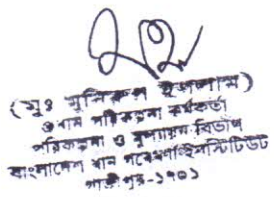 (মুঃ মুনিরুল ইসলাম)
প্রধান পরিকল্পনা কর্মকর্তা
পরিকল্পনা ও মূল্যায়ন বিভাগ
বাংলাদেশ ধান গবেষণা ইনস্টিটিউট
গাজীপুর-১৭০১